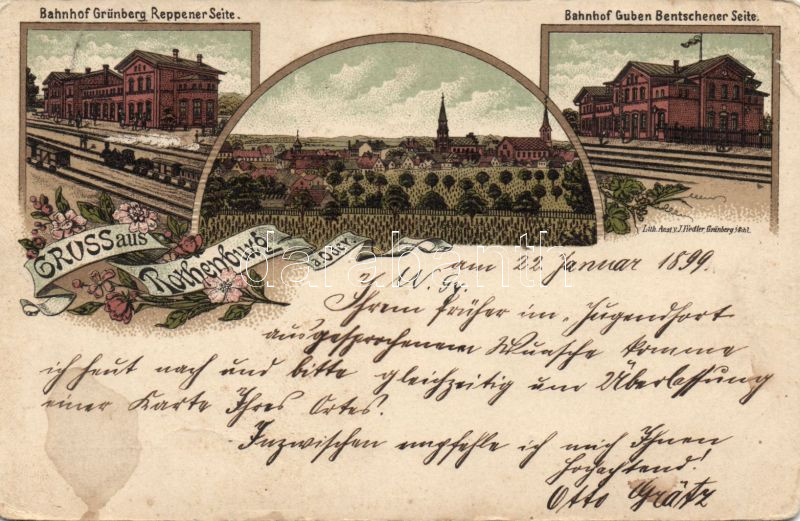 Bahnhof Grünberg Reppener Seite.
Bahnhof Guben Bentschener Seite.
GRUSS aus
Rothenburg
a. Oder.
Lith. Anst. v. J. Fiedler, Grünberg i/Schl.
darabanth
am 22. Januar 1899.
Ihrem früher im „Jugendhort
ausgesprochenem Wunsche komme
ich heut nach und bitte gleichzeitig um Überlassung
einer Karte Ihres Ortes.
Inzwischen empfehle ich mich Ihnen
Hochachtend!
Otto Grätz